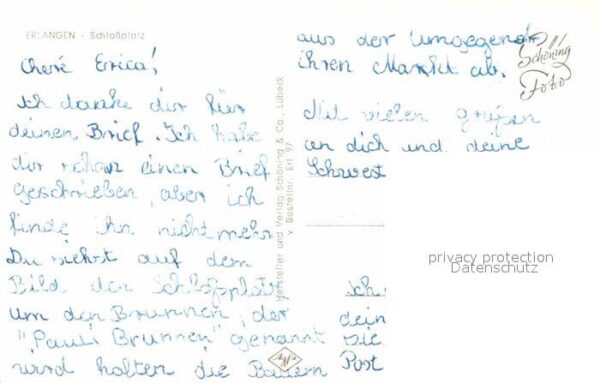 ERLANGEN - Schloßplatz
Cheré Erica!
Ich danke dir für
deinen Brief. Ich habe
dir schon einen Brief
geschrieben, aber ich
finde ihn nicht mehr
Du siehst auf dem
Bild den Schloßplatz
um den Brunnen, der
"Pauli Brunnen" genannt
wird halten die Bauern
aus der Umgegend
ihren Markt ab.
Mit vielen grüßen
an dich und deine
Schwest
Schöning
Foto
Hersteller und Verlag Schöning & Co., Lübeck
v Bestellnr. Erl 97
privacy protection
Datenschutz
Ich
dein
sie
Post
Agfa